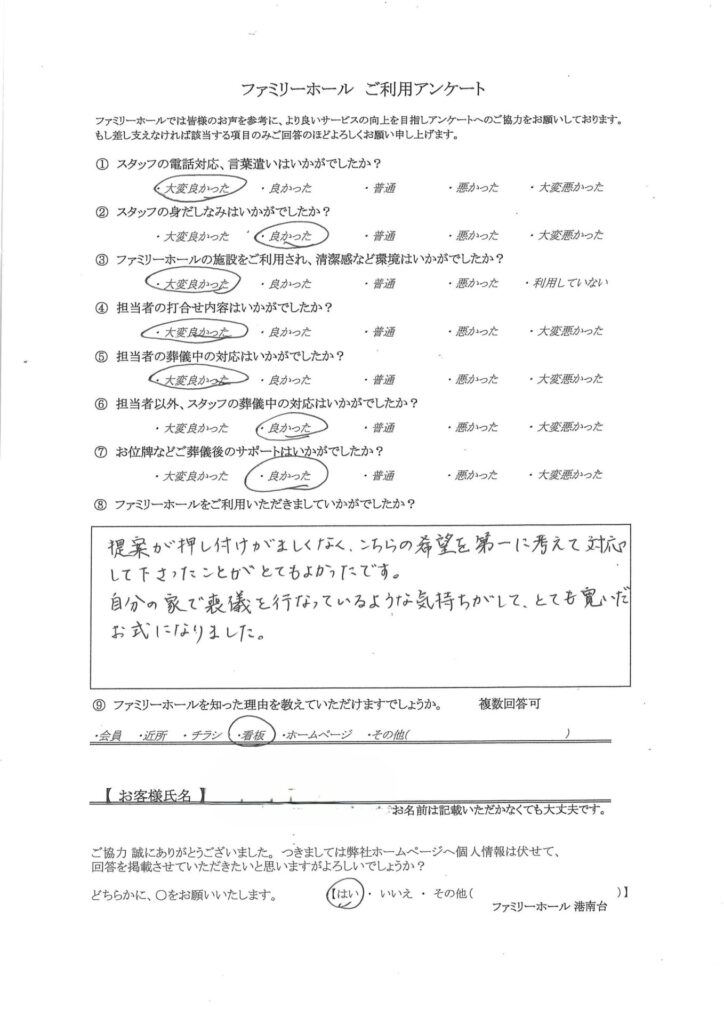 ファミリーホール ご利用アンケート
ファミリーホールでは皆様のお声を参考に、より良いサービスの向上を目指しアンケートへのご協力をお願いしております。
もし差し支えなければ該当する項目のみご回答のほどよろしくお願い申し上げます。
① スタッフの電話対応、言葉遣いはいかがでしたか？
・大変良かった ・良かった ・普通 ・悪かった ・大変悪かった
② スタッフの身だしなみはいかがでしたか？
・大変良かった ・良かった ・普通 ・悪かった ・大変悪かった
③ ファミリーホールの施設をご利用され、清潔感など環境はいかがでしたか？
・大変良かった ・良かった ・普通 ・悪かった ・利用していない
④ 担当者の打合せ内容はいかがでしたか？
・大変良かった ・良かった ・普通 ・悪かった ・大変悪かった
⑤ 担当者の葬儀中の対応はいかがでしたか？
・大変良かった ・良かった ・普通 ・悪かった ・大変悪かった
⑥ 担当者以外、スタッフの葬儀中の対応はいかがでしたか？
・大変良かった ・良かった ・普通 ・悪かった ・大変悪かった
⑦ お位牌などご葬儀後のサポートはいかがでしたか？
・大変良かった ・良かった ・普通 ・悪かった ・大変悪かった
⑧ ファミリーホールをご利用いただきましていかがでしたか？
提案が押し付けがましくなく、こちらの希望を第一に考えて対応
して下さったことがとてもよかったです。
自分の家で喪儀を行なっているような気持ちがして、とても寛いだ
お式になりました。
⑨ ファミリーホールを知った理由を教えていただけますでしょうか。 複数回答可
・会員 ・近所 ・チラシ ・看板 ・ホームページ ・その他( )
【 お客様氏名 】
お名前は記載いただかなくても大丈夫です。
ご協力 誠にありがとうございました。つきましては弊社ホームページへ個人情報は伏せて、
回答を掲載させていただきたいと思いますがよろしいでしょうか？
どちらかに、〇をお願いいたします。 【はい ・ いいえ ・ その他( )】
ファミリーホール 港南台